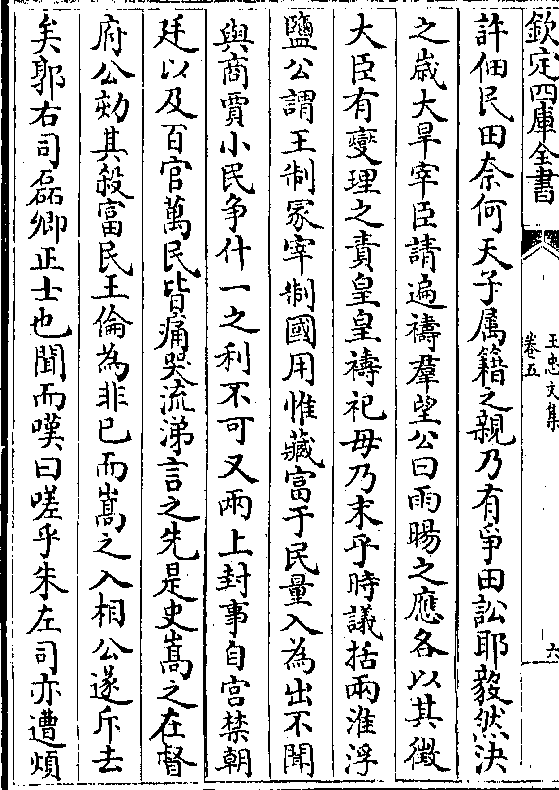 欽定四庫全書
王忠文集
卷五
六
許佃民田奈何天子属籍之親乃有爭田訟耶毅然決
之嵗大旱宰臣請遍禱羣望公曰雨暘之應各以其徴
大臣有變理之責皇皇禱祀毋乃末乎時議括兩淮浮
鹽公謂王制冡宰制國用惟藏富于民量入為出不聞
與商賈小民争什一之利不可又兩上封事自宫禁朝
廷以及百官萬民皆痛哭流涕言之先是史嵩之在督
府公劾其殺富民王倫為非已而嵩之入相公遂斥去
矣郭右司磊卿正士也聞而嘆曰嗟乎朱左司亦遭煩